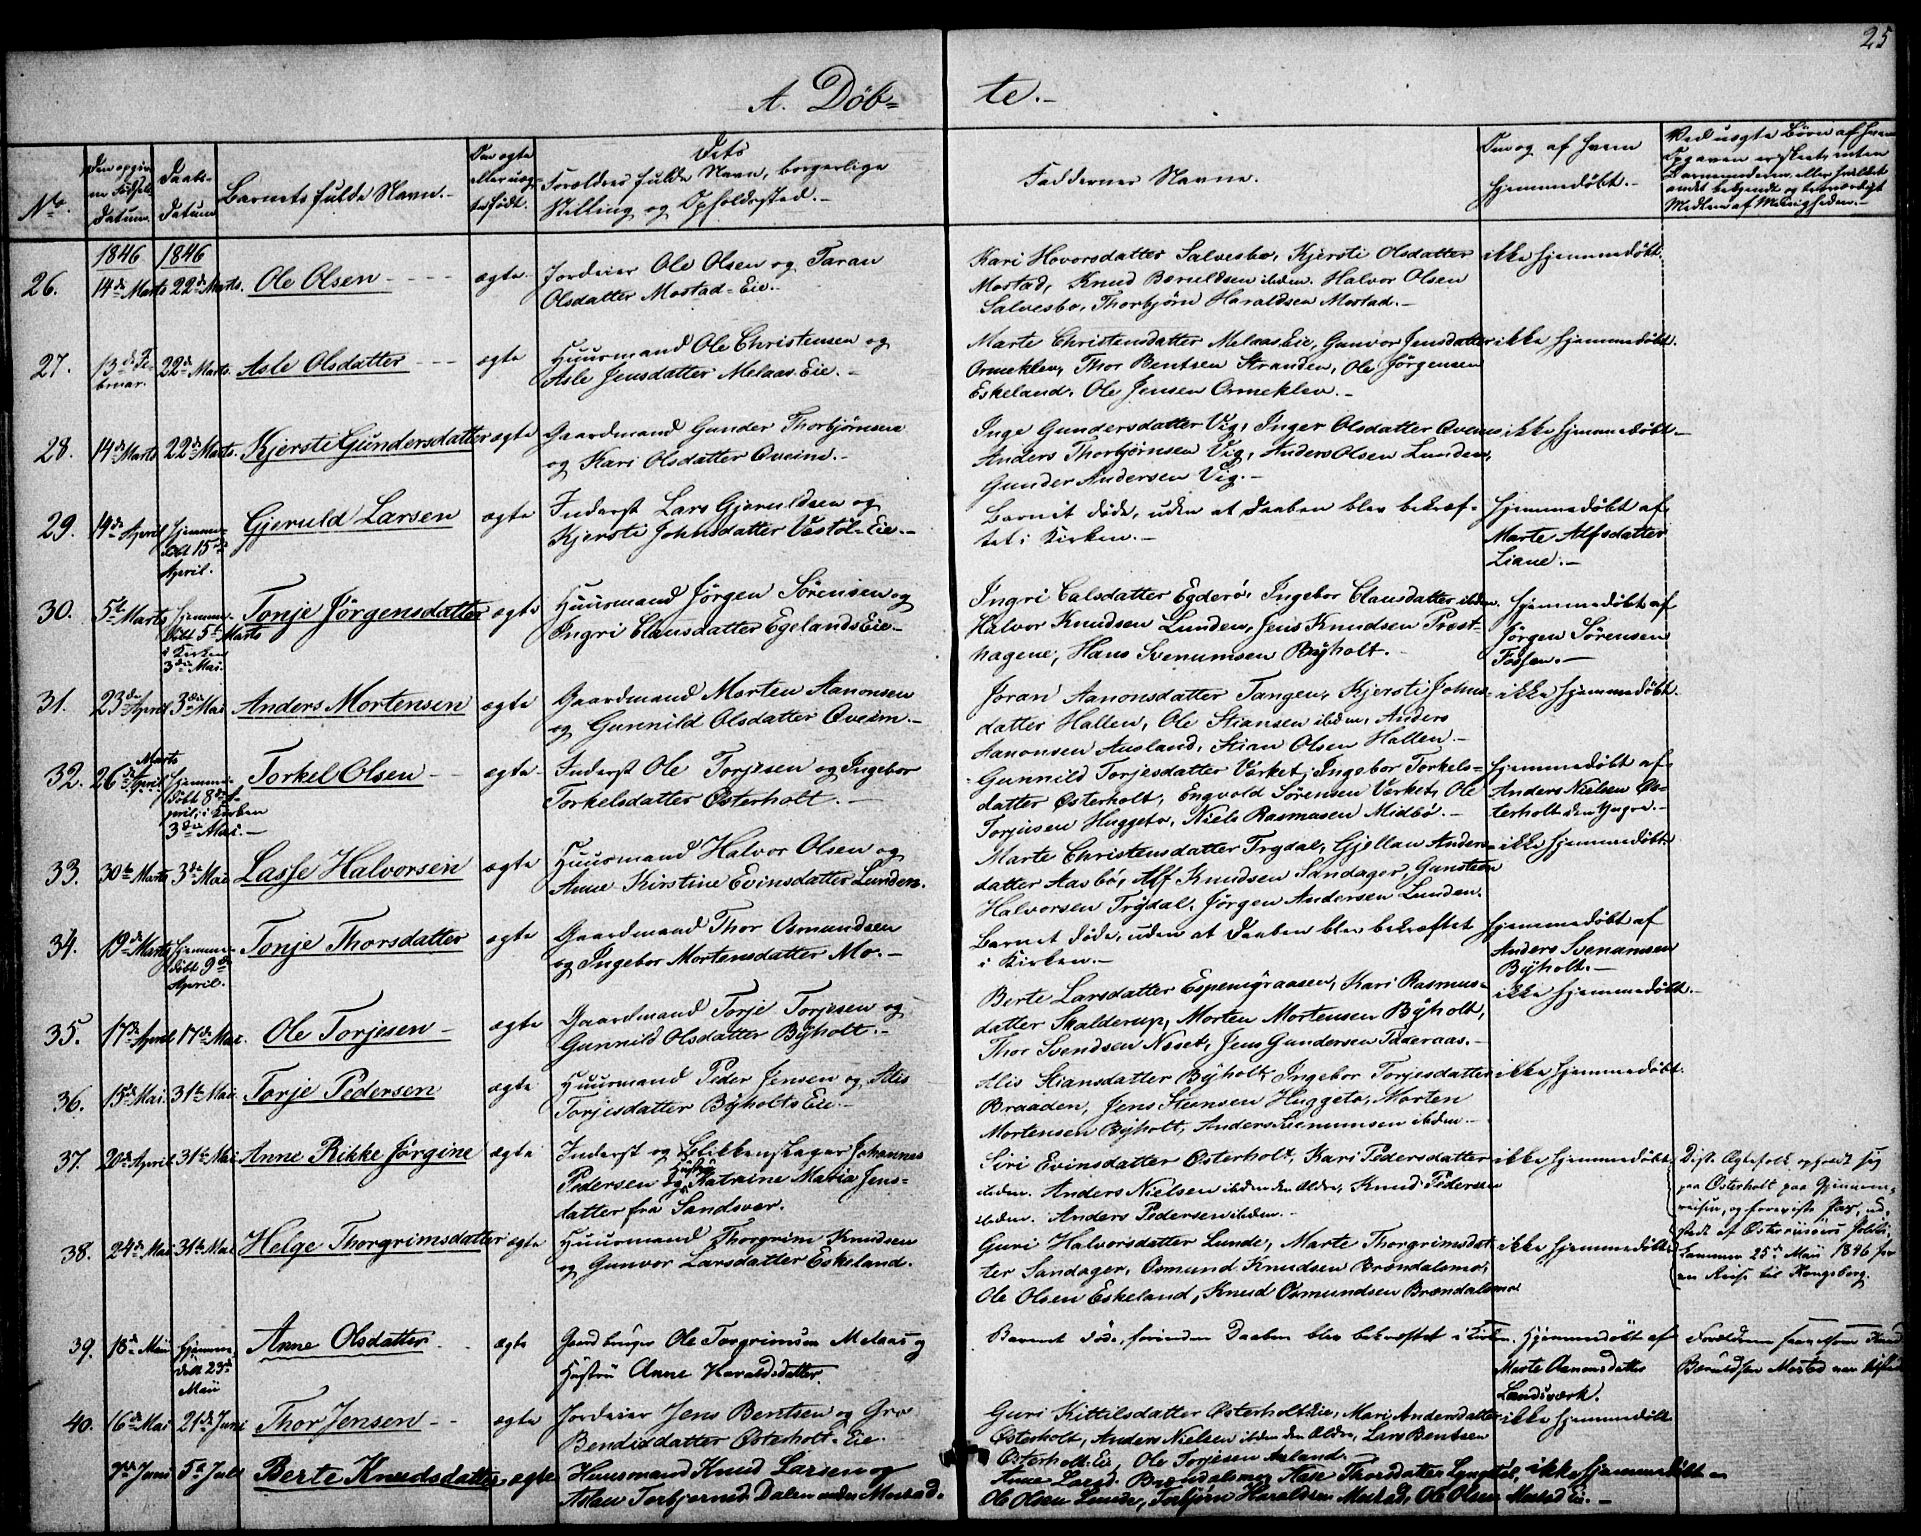 25
A. Døb=te.-
No.
Den opgivne Fødsels Datum.
Daabs-Datum
Barnets fulde Navn.-
Om ægte eller uægte født.
Dets
Forældres fulde Navn, borgerlige
Stilling og Opholdssted.-
Faddernes Navne.
Om og af hvem
hjemmedøbt.-
Ved uægte Børn af hvem
Opgaven er skeet, enten
Barnemoderen eller hvilket
andet bekjendt og troværdigt
Medlem af Menigheden.-
1846 1846
26. 14de Marts 22de Marts. Ole Olsen ægte.
Jordeier Ole Olsen og Taran
Olsdatter Mostad=Eie.-
Kari Hovorsdatter Salvesbo, Kjersti Olsdatter
Mostad, Knud Beruldsen ibden. Halvor Olsen
Salvesbo, Thorbjørn Haraldsen Mostad.-
ikke hjemmedøbt.
27. 13de Februar. 22de Marts. Asle Olsdatter ægte
Huusmand Ole Christensen og
Asle Jensdatter Melaas Eie.-
Marte Christensdatter Melaas Eie, Gunvor Jensdatter
Ormeklev, Thor Bentsen Stranden, Ole Jørgensen
Eskeland, Ole Jensen Ormeklev.-
ikke hjemmedøbt.
28. 14de Marts 22de Marts. Kjersti Gundersdatter ægte
Gaardmand Gunder Thorbjørnsen
og Kari Olsdatter Qveim.-
Inge Gundersdatter Vig, Inger Olsdatter Qveim
Anders Thorbjørnsen Vig, Anders Olsen Lunden,
Gunder Andersen Vig.-
ikke hjemmedøbt-
29. 14de April hjemmedøbt 15de April. Gjeruld Larsen ægte
Inderst Lars Gjeruldsen og
Kjersti Johnsdatter Vestøl=Eie.-
Barnet døde, uden at Daaben blev bekræf-
tet i Kirken.-
Hjemmedøbt af
Marte Alfsdatter
Liane.-
30. 5te Marts hjemmedøbt 5te Marts i Kirken 3die Mai. Tonje Jørgensdatter ægte
Huusmand Jørgen Sørensen og
Ingri Clausdatter Egelands Eie-
Ingri Calsdatter Egderø, Ingebor Clausdatter ibden.
Halvor Knudsen Lunden, Jens Knudsen Præst-
hagene, Hans Svenumsen Byholt.-
Hjemmedøbt af
Jørgen Sørensen
Fossen.-
31. 23de April 3die Mai Anders Mortensen ægte
Gaardmand Morten Aanonsen
og Gunnild Olsdatter Qveim.-
Joran Aanonsdatter Tangen, Kjersti Johns-
datter Hallen, Ole Stiansen ibden, Anders
Aanonsen Ausland, Stian Olsen Hallen.-
ikke hjemmedøbt
32. 26de April Marts hjemmedøbt 8de April, i Kirken 3die Mai.- Torkel Olsen ægte
Inderst Ole Torjesen og Ingebor
Torkelsdatter Østerholt.-
Gunnild Torjesdatter Værket, Ingebor Torkels-
datter Østerholt, Engvold Sørensen Værket, Ole
Torjusen Huggeto, Niels Rasmusen Midbø.-
Hjemmedøbt af
Anders Nielsen Øs-
terholt den Yngre.-
33. 30te Marts 3die Mai Lasse Halvorsen ægte
Huusmand Halvor Olsen og
Anne Kirstine Evinsdatter Lunden.
Marte Christensdatter Trydal, Gjellau Anders-
datter Aasbø, Alf Knudsen Sandager, Gunsten
Halvorsen Trydal, Jørgen Andersen Lunden.
ikke hjemmedøbt-
34. 19de Marts hjemmedøbt 9de April. Tonje Thorsdatter ægte
Gaardmand Thor Osmundsen
og Ingebor Mortensdatter Mo.-
Barnet døde, uden at Daaben blev bekræftet
i Kirken.-
Hjemmedøbt af
Anders Svenumsen
Byholt.-
35. 17de April 17de Mai. Ole Torjesen ægte
Gaardmand Torje Torjesen og
Gunnild Olsdatter Byholt.-
Berte Larsdatter Espenigraasen, Kari Rasmus-
datter Skalderup, Morten Mortensen Byholt,
Thor Svendsen Næset, Jens Gundersen Paderaas.-
ikke hjemmedøbt.-
36. 15de Mai 31te Mai. Torje Pedersen ægte
Huusmand Peder Jensen og Alis
Torjesdatter Byholts Eie.-
Alis Stiansdatter Byholt, Ingebor Torjesdatter
Braaden, Jens Stensen Huggeto, Morten
Mortensen Byholt, Anders Svenumsen ibden.-
ikke hjemmedøbt.
37. 20de April 31te Mai Anne Rikke Jørgine ægte
Inderst og Blikkenslager Johannes
Pedersen og Hustru Katrine Maria Jens-
datter fra Sandsvær.
Siri Evinsdatter Østerholt, Kari Pedersdatter
ibden. Anders Nielsen ibden den Ældre, Knud Pedersen
ibden. Anders Pedersen ibden.-
ikke hjemmedøbt
Disse Ægtefolk opholdt sig
paa Østerholt paa Gjennem-
reisen, og foreviste Pas, ud-
stedt af Østerriisøers Politi-
kammer 25de Mai 1846 for
en Reise til Kongsberg.
38. 24de Mai 31te Mai Helge Thorgrimsdatter ægte
Huusmand Thorgrim Knudsen
og Gunvor Larsdatter Eskeland.
Guri Halvorsdatter Lunde, Marte Thorgrimsdat-
ter Sandager, Osmund Knudsen Brøndalsmo,
Ole Olsen Eskeland, Knud Osmundsen Brøndalsmo
ikke hjemmedøbt
39. 18de Mai hjemmedøbt 23de Mai Anne Olsdatter ægte
Gaardbruger Ole Torgrimsen Melaas og
Hustru Anne Haraldsdatter
Barnet døde, forinden Daaben blev bekræftet i Kirken.
Hjemmedøbt af
Marte Aanonsdatter
Landsværk.
Forældrene Knud
Beruldsen Mostad
40. 16de Mai 21de Juni Thor Jensen ægte
Jordeier Jens Bentsen og Gro
Bendixdatter Østerholt-Eie.
Guri Kittilsdatter Østerholt Eie, Mari Andersdatter
Østerholt, Anders Nielsen ibden den Ældre, Lars Bentsen
Østerholt-Eie, Ole Torjesen Ausland
ikke hjemmedøbt
7de Juni 5te Juli Berte Knudsdatter ægte
Huusmand Knud Larsen og
Aslau Torbjørnsd. Dalen under Mostad.
Anne Larsd. Brøndalsmo, Aase Thorsdatter Lyngstøl,
Ole Olsen Lunde, Torbjørn Haraldsen Mostad, Ole Olsen Mostad Eie.-
ikke hjemmedøbt